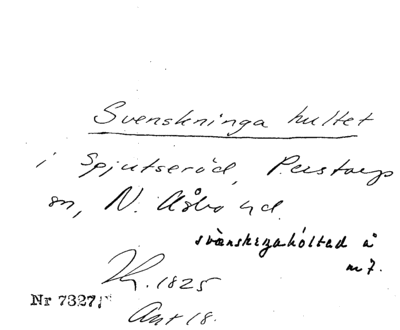 Svenskninga hultet
i Spjutseröd, Perstorps
sn, N. Åsbo hd.
svänskngahöltad å
m7.
1825
Nr 7327
Ant 18.